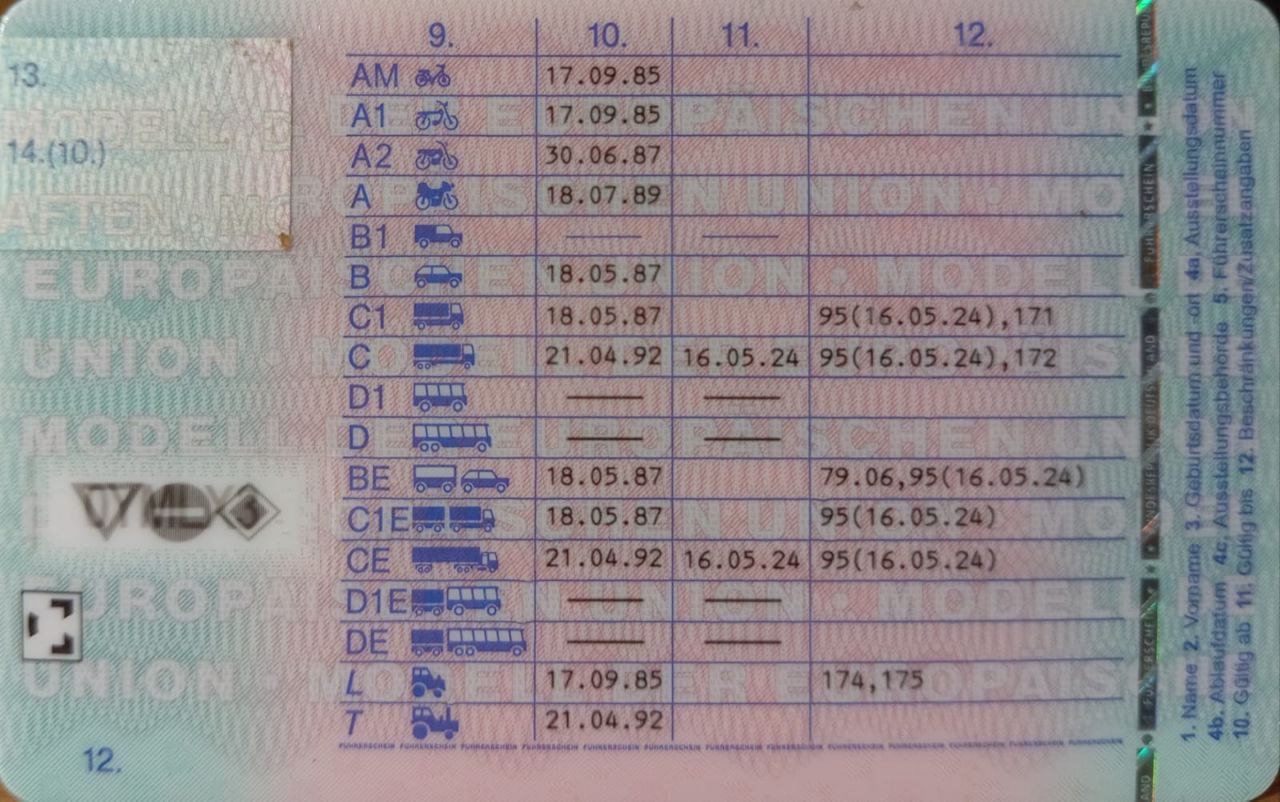 13.
14.(10.)
9. 10. 11. 12.
AM 17.09.85
A1 17.09.85
A2 30.06.87
A 18.07.89
B1
B 18.05.87
C1 18.05.87 95(16.05.24),171
C 21.04.92 16.05.24 95(16.05.24),172
D1
D
BE 18.05.87 79.06,95(16.05.24)
C1E 18.05.87 95(16.05.24)
CE 21.04.92 16.05.24 95(16.05.24)
D1E
DE
L 17.09.85 174,175
T 21.04.92
FÜHRERSCHEIN FÜHRERSCHEIN FÜHRERSCHEIN FÜHRERSCHEIN FÜHRERSCHEIN
12.
1. Name 2. Vorname 3. Geburtsdatum und -ort 4a. Ausstellungsdatum
4b. Ablaufdatum 4c. Ausstellungsbehörde 5. Führerscheinnummer
10. Gültig ab 11. Gültig bis 12. Beschränkungen/Zusatzangaben
EUROPÄISCHEN UNION • MODELL
UNION • MODELL
MODELL DER EUROPÄISCHEN UNION